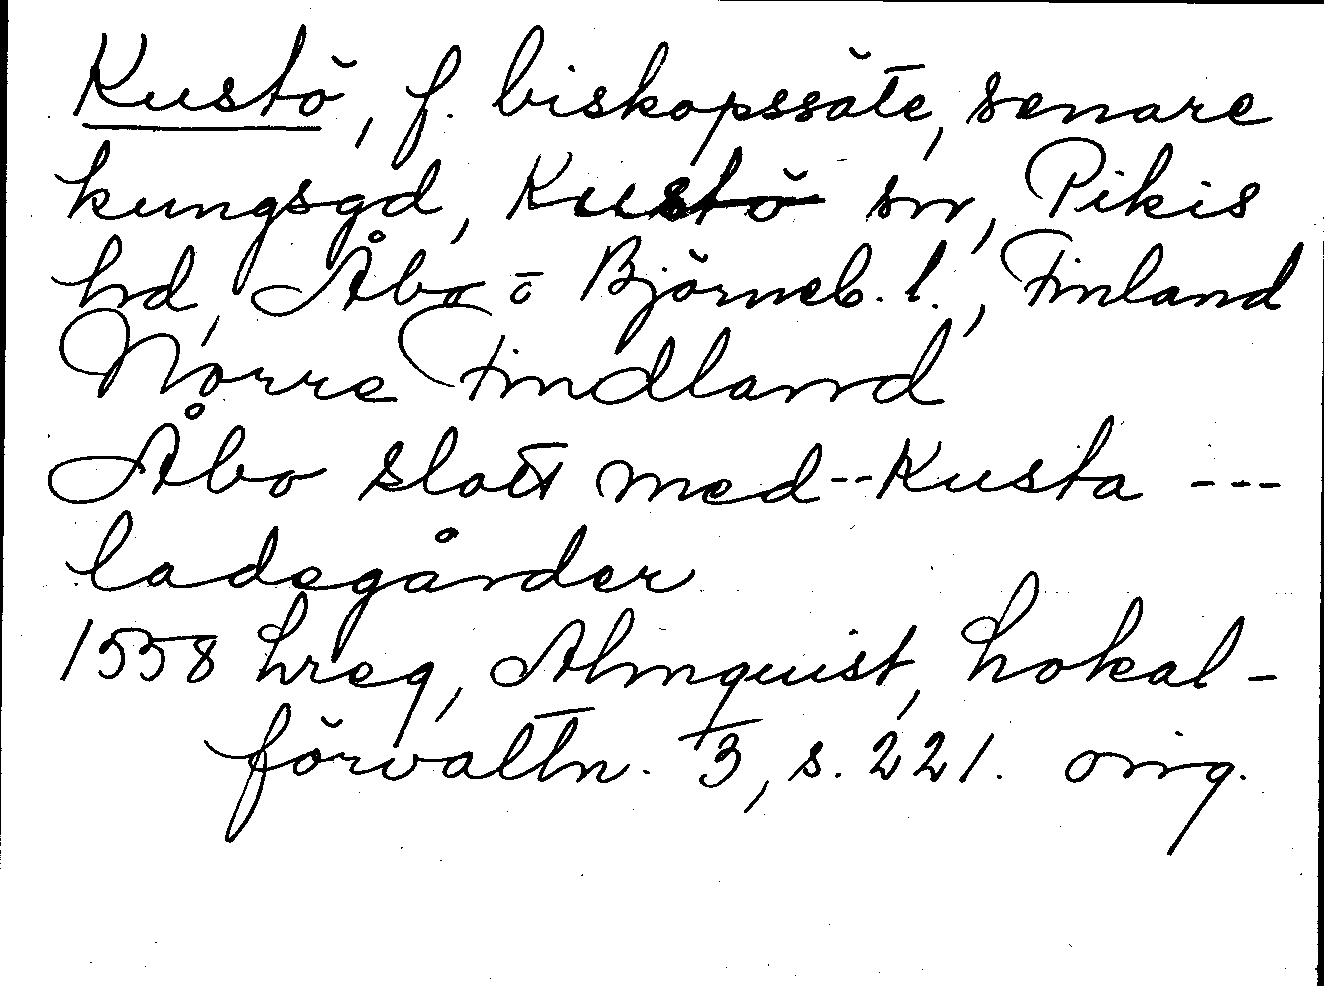 Kustö, f. biskopssäte, senare
kungsgd, Kustö sn, Pikis
hd, Åbo o Björneb. l., Finland
Norre Findland
Åbo slott med--Kusta ---
ladegårder
1558 hreg, Almquist, Lokal-
förvaltn. 3, s. 221. orig.